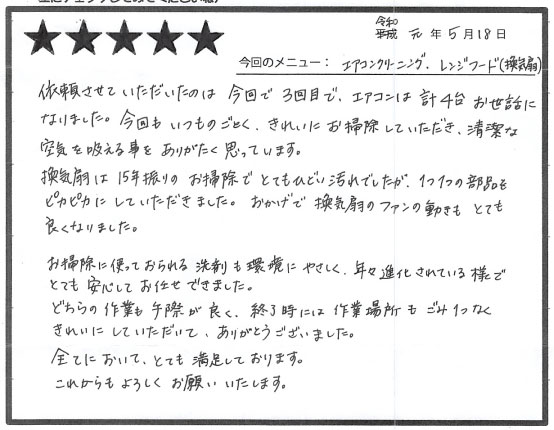 令和
平成 元年5月18日
★★★★★
今回のメニュー: エアコンクリーニング、レンジフード(換気扇)
依頼させていただいたのは 今回で 3回目で、エアコンは 計4台 お世話に
なりました。今回も いつものごとく、きれいに お掃除していただき、清潔な
空気を吸える事を ありがたく 思っています。
換気扇は 15年振りの お掃除で とてもひどい汚れでしたが、1つ1つの部品を
ピカピカに していただきました。おかげで 換気扇のファンの動きも とても
良くなりました。
お掃除に使っておられる 洗剤も 環境に やさしく、年々進化されている様で
とても 安心して お任せできました。
どちらの作業も 手際が 良く、終了時には 作業場所も ごみ1つなく
きれいに していただいて、ありがとうございました。
全てにおいて、とても 満足しております。
これからも よろしく お願い いたします。